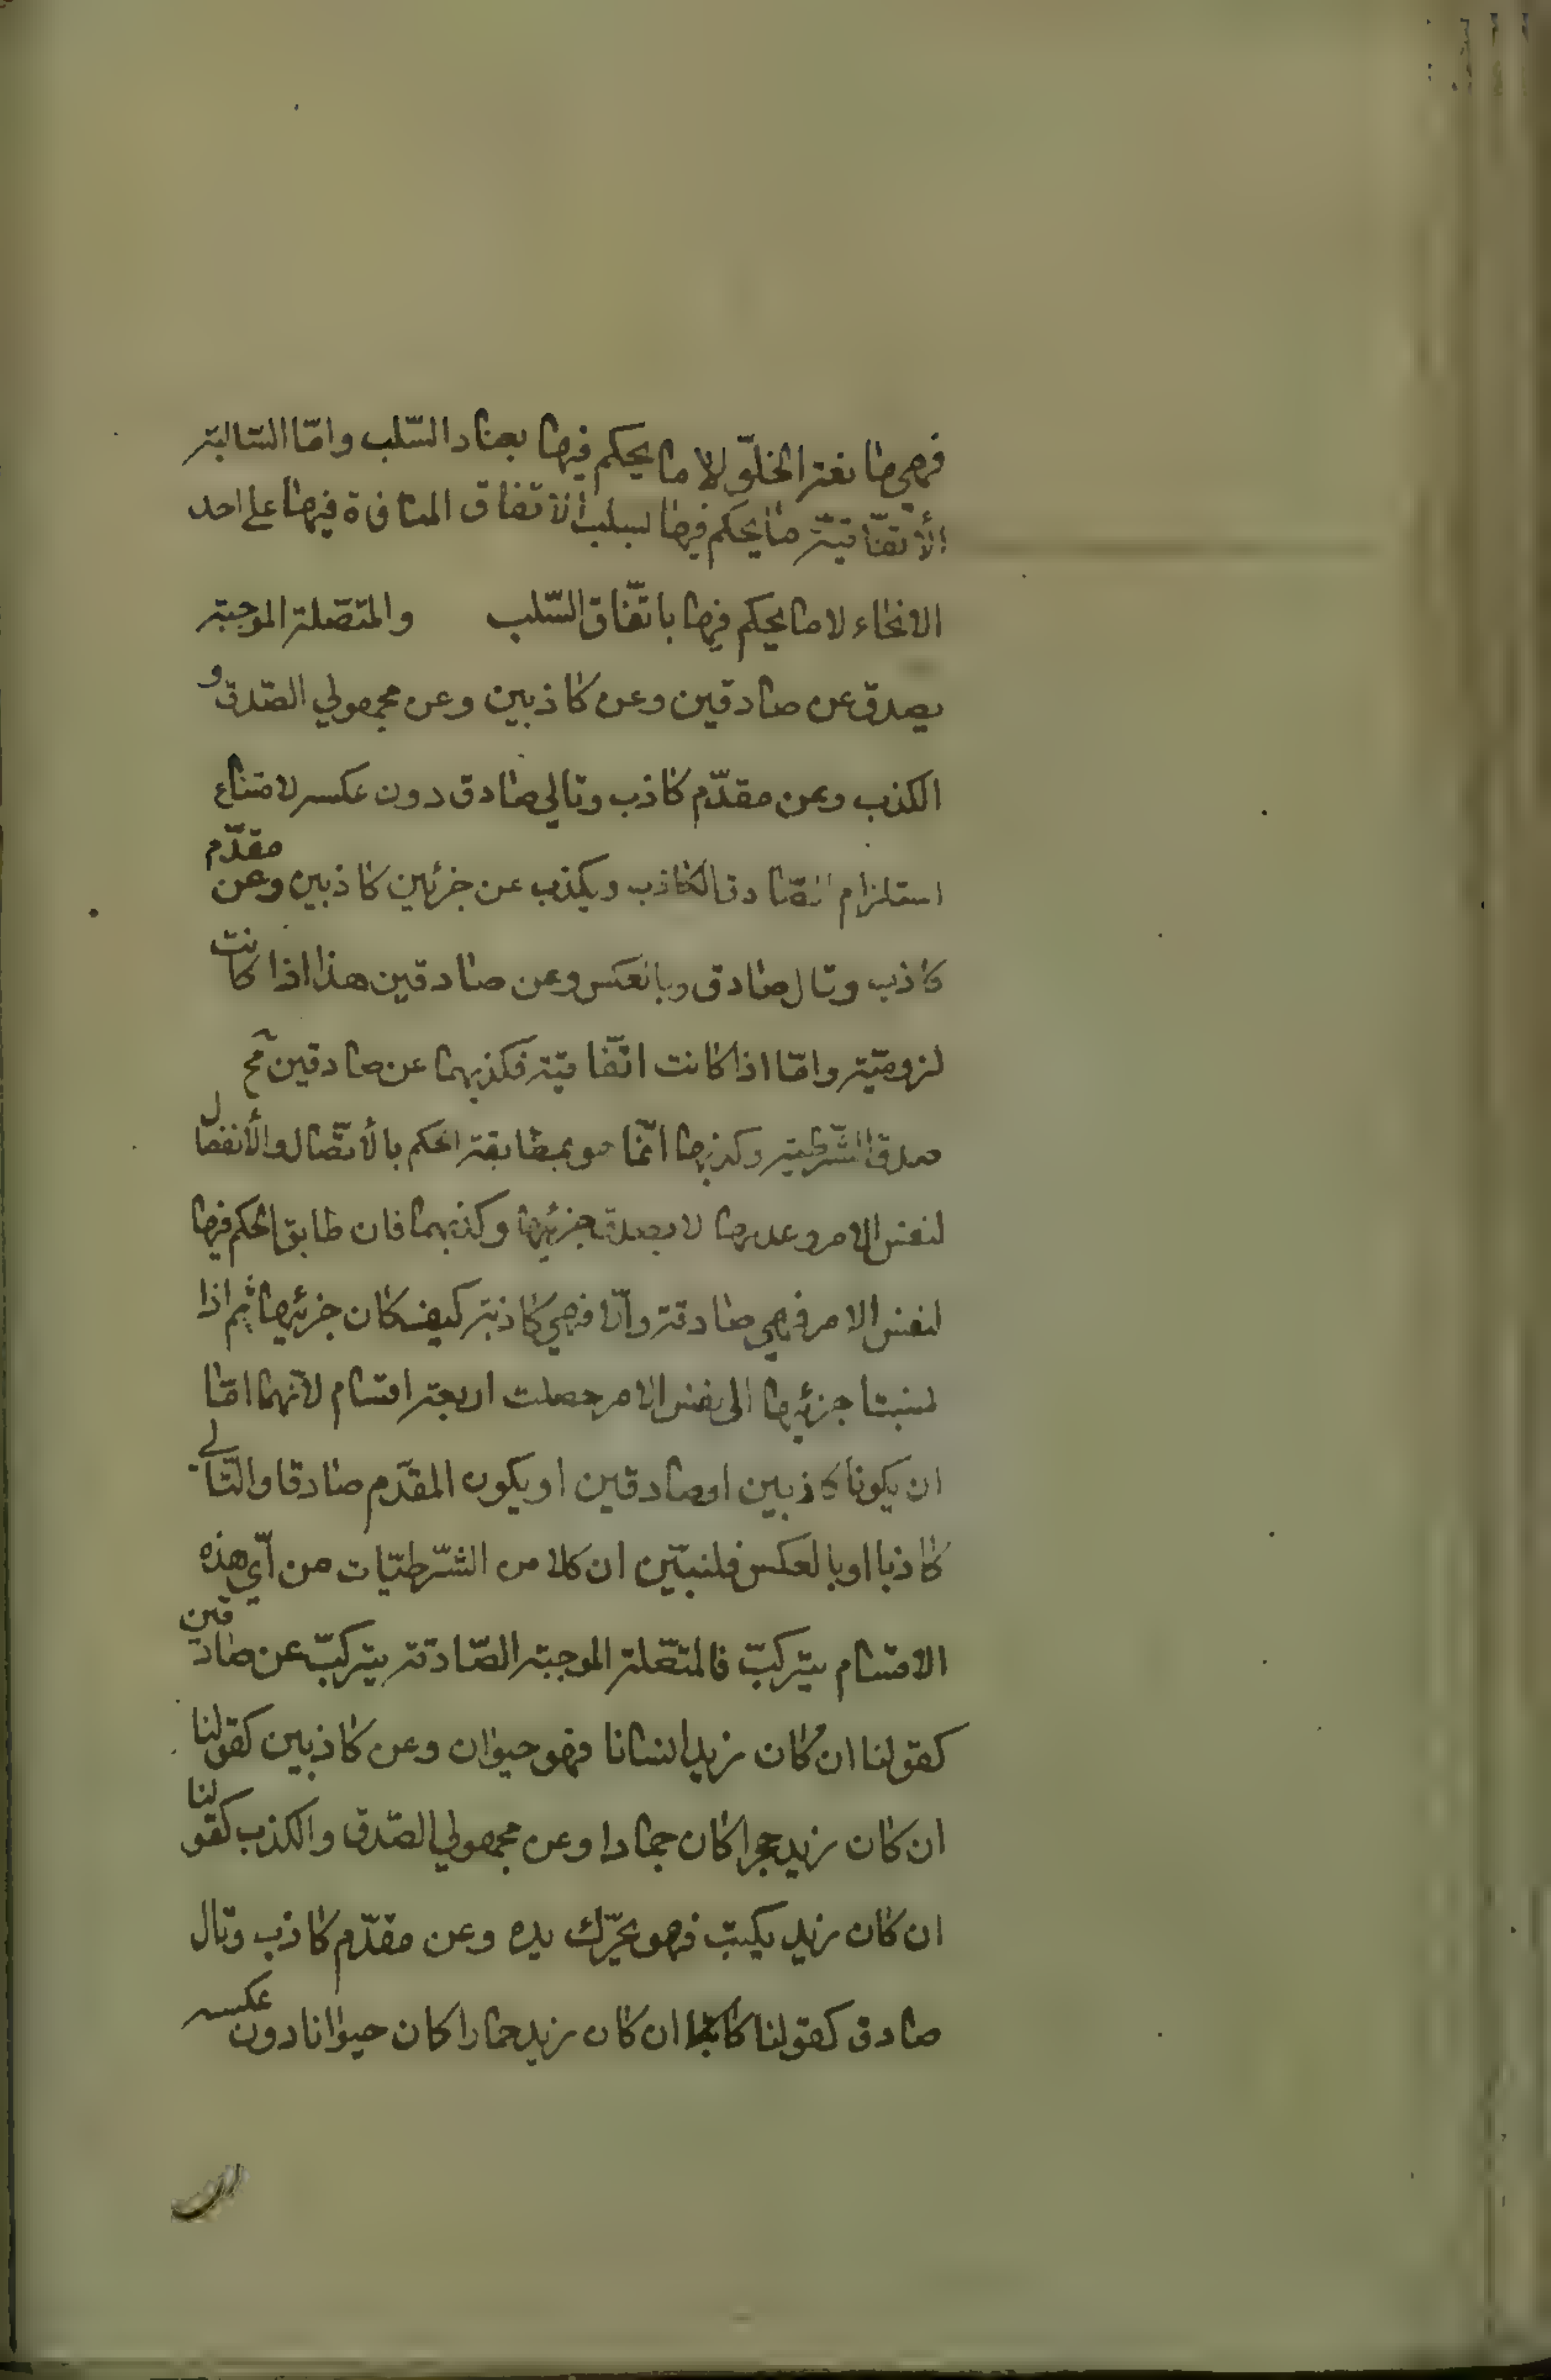 فهي مانعة الخلو لا ما يحكم فيها بعناد السّلب وامّا السّالبة
الأتفاقيّة ما يحكم فيها لسلب الاتفاق المنافاة فيها على احد
الانحاء لا ما يحكم فيها باتّفاق السّلب والمتّصلة الموجبة
يصدق عن صادقين وعن كاذبين وعن مجهولي الصّدق و
الكذب وعن مقدّم كاذب وتالي صادق دون عكسه لامتناع
استلزام الصّادق الكاذب ويكذب عن جزئين كاذبين وعن مقدّم
كاذب وتال صادق وبالعكس وعن صادقين هذا اذا كانت
لزوميّة وامّا اذا كانت اتّفاقيّة فكذبهما عن صادقين مح
صدق الشّرطيّة وكذبها انّما هو بمطابقة الحكم بالأتّصال والأنفصال
لنفس الامر وعدمها لا بصدق جزئيها وكذبهما فان طابق الحكم فيها
لنفس الامر فهي صادقة والّا فهي كاذبة كيف كان جزئيها ثم اذا
نسبتا جزئيها الى نفس الامر حصلت اربعة اقسام لأنّهما امّا
ان يكونا كاذبين او صادقين او يكون المقدّم صادقا والتّالي
كاذبا او بالعكس فلنبيّن ان كلا من الشّرطيّات من ايّ هذه
الاقسام يتركّب فالمتّصلة الموجبة الصّادقة يتركّب عن صادقين
كقولنا ان كان زيد انسانا فهو حيوان وعن كاذبين كقولنا
ان كان زيد حجرا كان جمادا وعن مجهولي الصّدق والكذب كقولنا
ان كان زيد يكتب فهو يحرّك يده وعن مقدّم كاذب وتال
صادق كقولنا ان كان زيد حمارا كان حيوانا دون عكسه